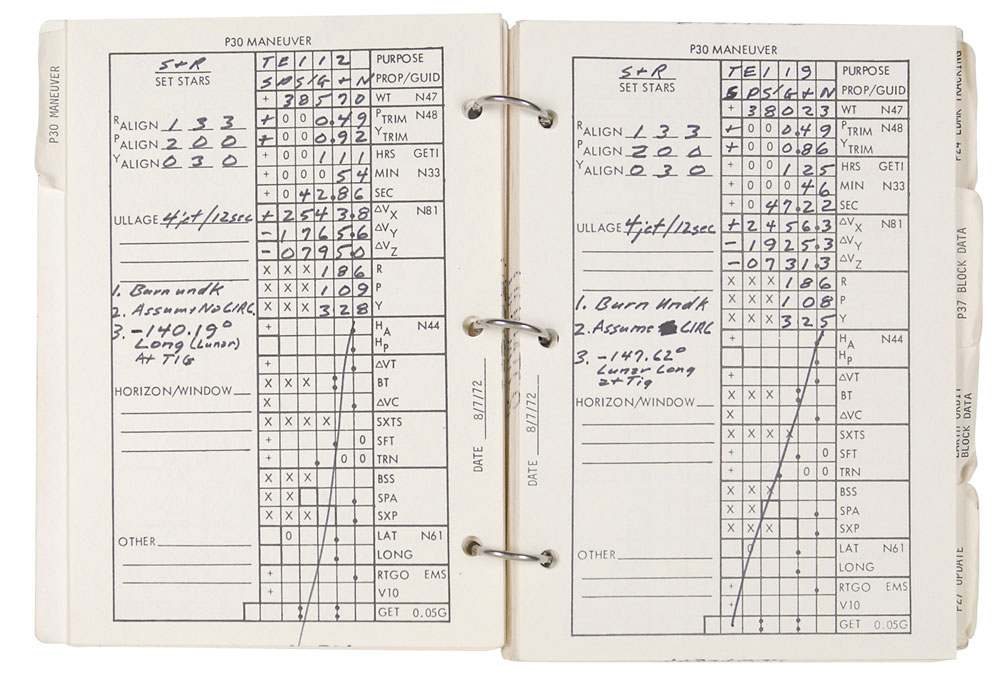 P30 MANEUVER
P30 MANEUVER
S+R
SET STARS
T E I 1 1 2 PURPOSE
S P S / G + N PROP/GUID
+ 3 8 5 7 0 WT N47
R ALIGN 1 3 3
+ 0 0 0.4 9 P TRIM N48
P ALIGN 2 0 0
+ 0 0 0.9 2 Y TRIM
Y ALIGN 0 3 0
+ 0 0 1 1 1 HRS GETI
+ 0 0 0 5 4 MIN N33
+ 0 4 2.8 6 SEC
ULLAGE 4jet/12sec
+ 2 5 4 3.8 ΔVX N81
- 1 7 6 5.6 ΔVY
- 0 7 9 5.0 ΔVZ
X X X 1 8 6 R
X X X 1 0 9 P
X X X 3 2 8 Y
1. Burn undk
2. Assume No CIRC
3. -140.19°
Long (Lunar)
At TIG
+ HA N44
HP
+ ΔVT
HORIZON/WINDOW
X X X BT
X ΔVC
X X X X SXTS
+ 0 SFT
+ 0 0 TRN
X X X BSS
X X SPA
X X X SXP
OTHER
0 LAT N61
LONG
+ RTGO EMS
+ V10
GET 0.05G
DATE 8/7/72
P30 MANEUVER
S+R
SET STARS
T E I 1 1 9 PURPOSE
S P S / G + N PROP/GUID
+ 3 8 0 2 3 WT N47
R ALIGN 1 3 3
+ 0 0 0.4 9 P TRIM N48
P ALIGN 2 0 0
+ 0 0 0.8 6 Y TRIM
Y ALIGN 0 3 0
+ 0 0 1 2 5 HRS GETI
+ 0 0 0 4 6 MIN N33
+ 0 4 7.2 2 SEC
ULLAGE 4jet/12sec
+ 2 4 5 6.3 ΔVX N81
- 1 9 2 5.3 ΔVY
- 0 7 3 1.3 ΔVZ
X X X 1 8 6 R
X X X 1 0 8 P
X X X 3 2 5 Y
1. Burn Undk
2. Assume CIRC
3. -147.62°
Lunar Long
at Tig
+ HA N44
HP
+ ΔVT
HORIZON/WINDOW
X X X BT
X ΔVC
X X X X SXTS
+ 0 SFT
+ 0 0 TRN
X X X BSS
X X SPA
X X X SXP
OTHER
0 LAT N61
LONG
+ RTGO EMS
+ V10
GET 0.05G
DATE 8/7/72
P24 LDMK TRACKING
P37 BLOCK DATA
BLOCK DATA
P27 UPDATE